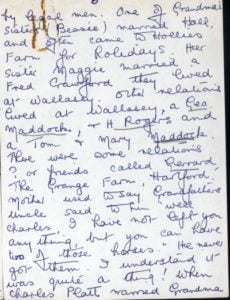 by legal men. One of Grandma's
Sisters (Bessie) married Hall,
and often came to Hollies
Farm for Holidays. Her
Sister Maggie married a
Fred Crawford they lived
at Wallasey. Other relations
lived at Wallasey, a Geo.
Maddocks, + H Rogers and
a Tom & Mary Maddock.
There were some relations
? or friends called Gerrard,
The Grange Farm, Hartford,
Mother used to say Grandfathers
Uncle said to him well
Charles I have not left you
anything, but you can have
two of those horses." He never
got them I understand it
was quite a thing! When
Charles Platt married Grandma